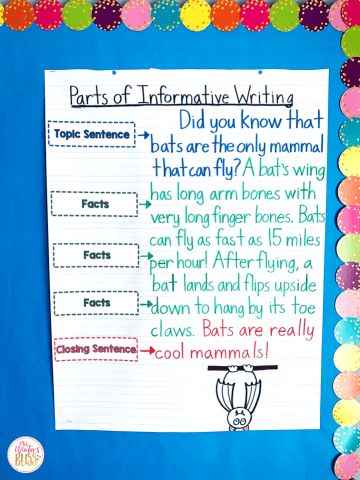 Parts of Informative Writing
Topic Sentence
Did you know that
bats are the only mammal
that can fly? A bat's wing
Facts
has long arm bones with
very long finger bones. Bats
can fly as fast as 15 miles
Facts
per hour! After flying, a
bat lands and flips upside
Facts
down to hang by its toe
claws. Bats are really
Closing Sentence
cool mammals!
Mrs. Winter's
BLISS